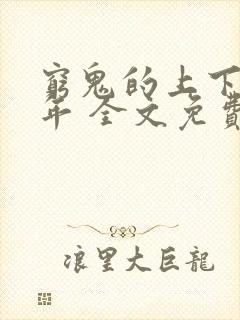 窮鬼的上下
年 全文免費
浪里大巨龍